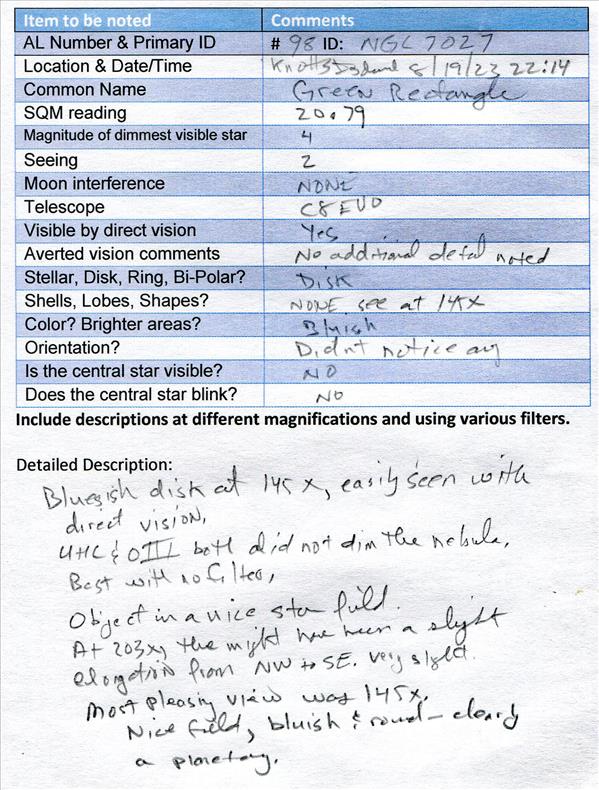 Item to be noted Comments
AL Number & Primary ID # 98 ID: NGC 7027
Location & Date/Time Knotts Island 8/19/23 22:14
Common Name Green Rectangle
SQM reading 20.79
Magnitude of dimmest visible star 4
Seeing 2
Moon interference NONE
Telescope C8 EVO
Visible by direct vision Yes
Averted vision comments No additional detal noted
Stellar, Disk, Ring, Bi-Polar? Disk
Shells, Lobes, Shapes? NONE see at 145x
Color? Brighter areas? Bluish
Orientation? Didnt notice any
Is the central star visible? NO
Does the central star blink? NO
Include descriptions at different magnifications and using various filters.
Detailed Description:
Blueish disk at 145 x, easily seen with
direct vision,
UHC & OIII both did not dim the nebula,
Best with no filter,
Object in a nice star field.
At 203x, the might have been a slight
elongation from NW to SE. very slight.
Most pleasing view was 145x.
Nice field, bluish & round - clearly
a planetary.